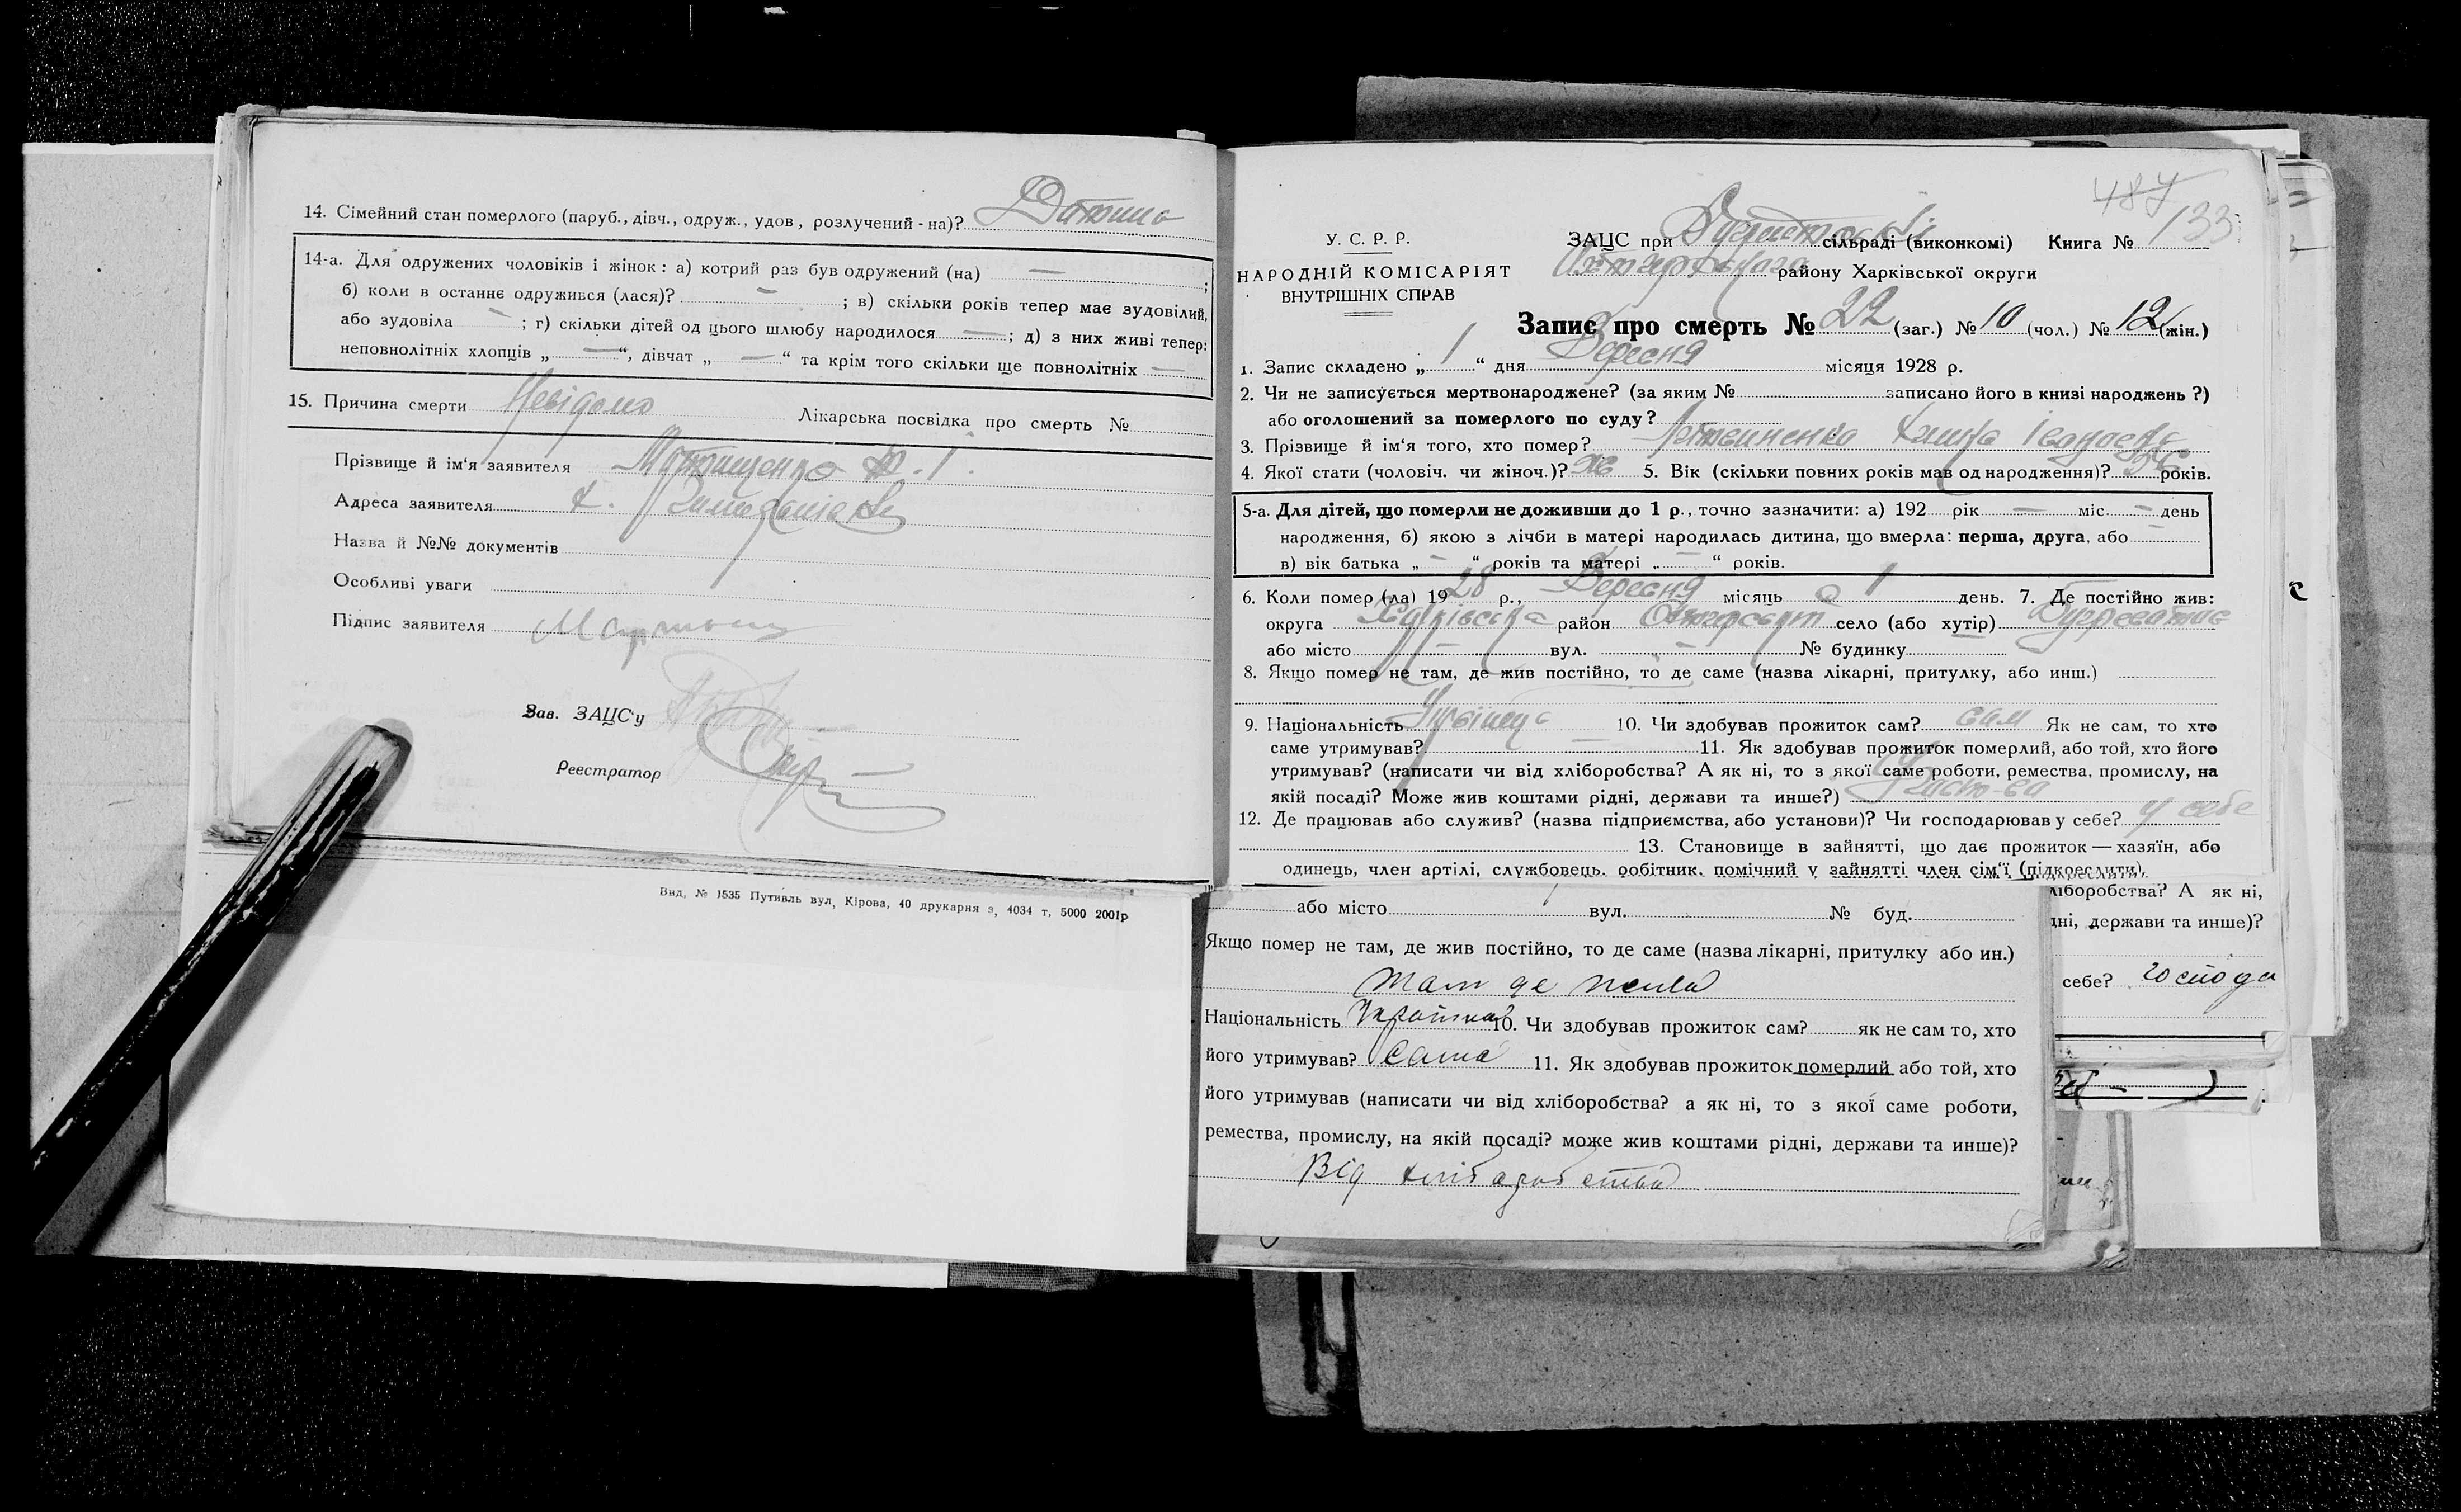 14. Сімейний стан померлого (паруб., дівч., одруж., удов, розлучений-на)? Дитина
14-а. Для одружених чоловіків і жінок: а) котрий раз був одружений (на) — ;
б) коли в останнє одружився (лася)? — ; в) скільки років тепер має зудовілий,
або зудовіла — ; г) скільки дітей од цього шлюбу народилося — ; д) з них живі тепер:
неповнолітніх хлопців „ — “, дівчат „ — “ та крім того скільки ще повнолітніх —
15. Причина смерти Невідомо Лікарська посвідка про смерть №
Прізвище й ім‘я заявителя
Адреса заявителя х.
Назва й №№ документів
Особливі уваги
Підпис заявителя
Зав. ЗАЦС‘у
Реєстратор
Вид. № 1535 Путивль вул, Кірова, 40 друкарня з, 4034 т, 5000 2001р
487
133
У. С. Р. Р.
НАРОДНІЙ КОМІСАРІЯТ
ВНУТРІШНІХ СПРАВ
ЗАЦС при сільраді (виконкомі) Книга №
району Харківської округи
Запис про смерть № 22 (заг.) № 10 (чол.) № 12 (жін.)
1. Запис складено „ 1 “ дня Вересня місяця 1928 р.
2. Чи не записується мертвонароджене? (за яким № записано його в книзі народжень ?)
або оголошений за померлого по суду?
3. Прізвище й ім‘я того, хто помер? Литвиненко Іванівна
4. Якої стати (чоловіч. чи жіноч.)? ж 5. Вік (скільки повних років мав од народження)? років.
5-а. Для дітей, що померли не доживши до 1 р., точно зазначити: а) 192 рік — міс. — день
народження, б) якою з лічби в матері народилась дитина, що вмерла: перша, друга, або —
в) вік батька „ — “ років та матері „ — “ років.
6. Коли помер (ла) 1928 р., Вересня місяць 1 день. 7. Де постійно жив:
округа Харківська район село (або хутір)
або місто — вул. — № будинку
8. Якщо помер не там, де жив постійно, то де саме (назва лікарні, притулку, або инш.)
9. Національність Українка 10. Чи здобував прожиток сам? сам Як не сам, то хто
саме утримував? — 11. Як здобував прожиток померлий, або той, хто його
утримував? (написати чи від хліборобства? А як ні, то з якої саме роботи, ремества, промислу, на
якій посаді? Може жив коштами рідні, держави та инше?)
12. Де працював або служив? (назва підприємства, або установи)? Чи господарював у себе? у себе
13. Становище в зайнятті, що дає прожиток — хазяїн, або
одинець, член артілі, службовець, робітник, помічний у зайнятті член сім‘ї (підкреслити).
або місто вул. № буд.
Якщо помер не там, де жив постійно, то де саме (назва лікарні, притулку або ин.)
там де жила
Національність Українка 10. Чи здобував прожиток сам? як не сам то, хто
його утримував? сама 11. Як здобував прожиток померлий або той, хто
його утримував (написати чи від хліборобства? а як ні, то з якої саме роботи,
ремества, промислу, на якій посаді? може жив коштами рідні, держави та инше)?
Від хліборобства
ліборобства? А як ні,
дні, держави та инше)?
себе? господа